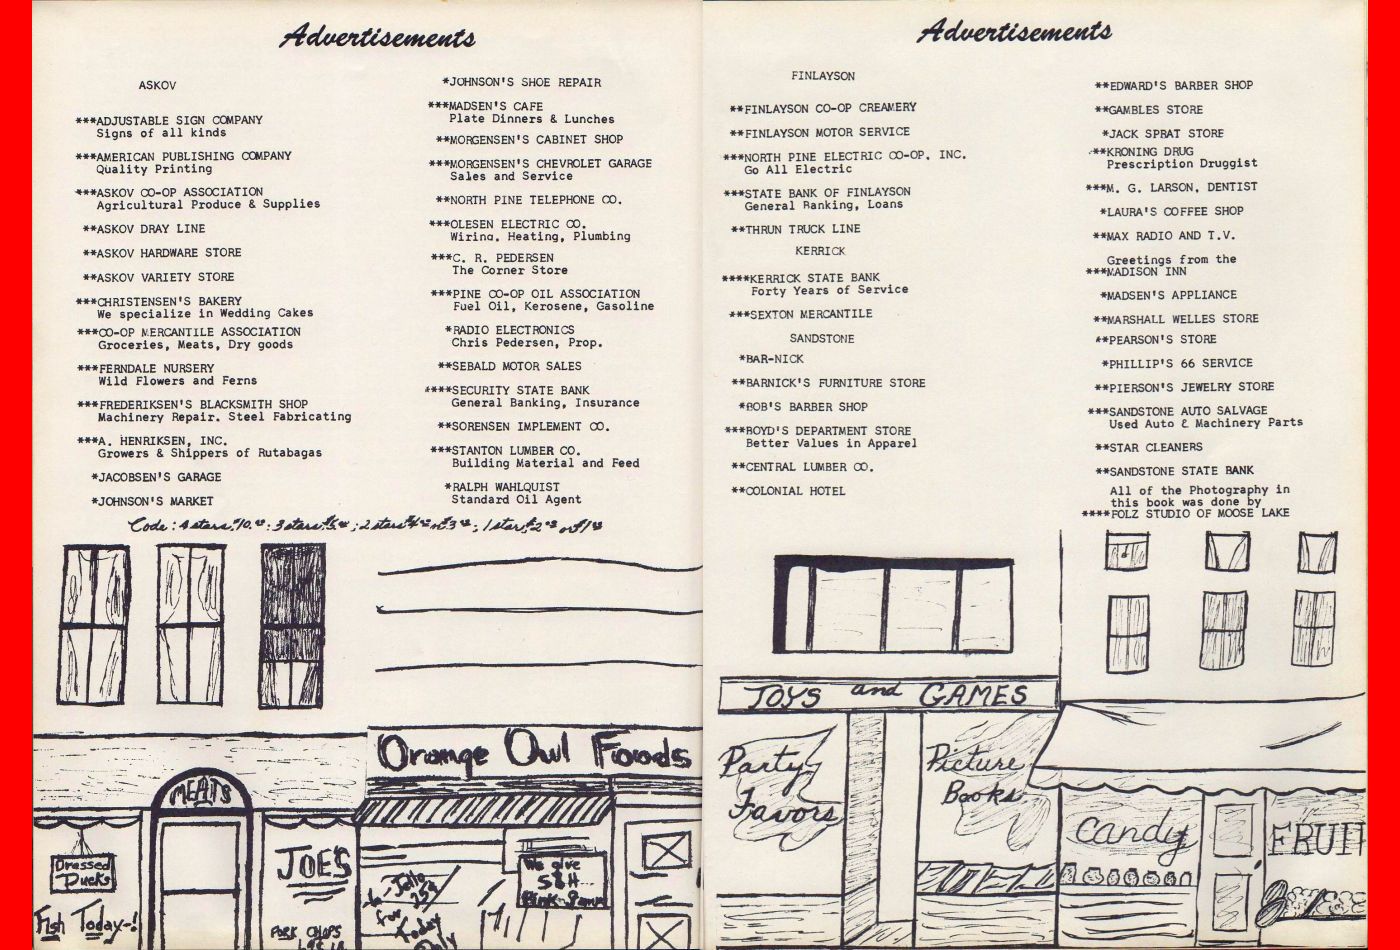 Advertisements
ASKOV
***ADJUSTABLE SIGN COMPANY
Signs of all kinds
***AMERICAN PUBLISHING COMPANY
Quality Printing
***ASKOV CO-OP ASSOCIATION
Agricultural Produce & Supplies
**ASKOV DRAY LINE
**ASKOV HARDWARE STORE
**ASKOV VARIETY STORE
***CHRISTENSEN'S BAKERY
We specialize in Wedding Cakes
***CO-OP MERCANTILE ASSOCIATION
Groceries, Meats, Dry goods
***FERNDALE NURSERY
Wild Flowers and Ferns
***FREDERIKSEN'S BLACKSMITH SHOP
Machinery Repair. Steel Fabricating
***A. HENRIKSEN, INC.
Growers & Shippers of Rutabagas
*JACOBSEN'S GARAGE
*JOHNSON'S MARKET
*JOHNSON'S SHOE REPAIR
***MADSEN'S CAFE
Plate Dinners & Lunches
**MORGENSEN'S CABINET SHOP
***MORGENSEN'S CHEVROLET GARAGE
Sales and Service
**NORTH PINE TELEPHONE CO.
***OLESEN ELECTRIC CO.
Wiring. Heating, Plumbing
***C. R. PEDERSEN
The Corner Store
***PINE CO-OP OIL ASSOCIATION
Fuel Oil, Kerosene, Gasoline
*RADIO ELECTRONICS
Chris Pedersen, Prop.
**SEBALD MOTOR SALES
****SECURITY STATE BANK
General Banking, Insurance
**SORENSEN IMPLEMENT CO.
***STANTON LUMBER CO.
Building Material and Feed
*RALPH WAHLQUIST
Standard Oil Agent
Code: 4 stars, $10.00; 3 stars ; 2 stars $4.00 or 3.00; 1 star, $2.00 or $1.00
MEATS
Dressed Ducks
Fish Today-!
JOE'S
PORK CHOPS
Orange Owl Foods
Jello
25¢
for
Today
Only
We give
S&H
Advertisements
FINLAYSON
**FINLAYSON CO-OP CREAMERY
**FINLAYSON MOTOR SERVICE
***NORTH PINE ELECTRIC CO-OP. INC.
Go All Electric
***STATE BANK OF FINLAYSON
General Banking, Loans
**THRUN TRUCK LINE
KERRICK
****KERRICK STATE BANK
Forty Years of Service
***SEXTON MERCANTILE
SANDSTONE
*BAR-NICK
**BARNICK'S FURNITURE STORE
*BOB'S BARBER SHOP
***BOYD'S DEPARTMENT STORE
Better Values in Apparel
**CENTRAL LUMBER CO.
**COLONIAL HOTEL
**EDWARD'S BARBER SHOP
**GAMBLES STORE
*JACK SPRAT STORE
***KRONING DRUG
Prescription Druggist
***M. G. LARSON, DENTIST
*LAURA'S COFFEE SHOP
**MAX RADIO AND T.V.
Greetings from the
***MADISON INN
*MADSEN'S APPLIANCE
**MARSHALL WELLES STORE
**PEARSON'S STORE
*PHILLIP'S 66 SERVICE
**PIERSON'S JEWELRY STORE
***SANDSTONE AUTO SALVAGE
Used Auto & Machinery Parts
**STAR CLEANERS
**SANDSTONE STATE BANK
All of the Photography in
this book was done by
****FOLZ STUDIO OF MOOSE LAKE
TOYS and GAMES
Party
Favors
Picture
Books
Candy
FRUIT